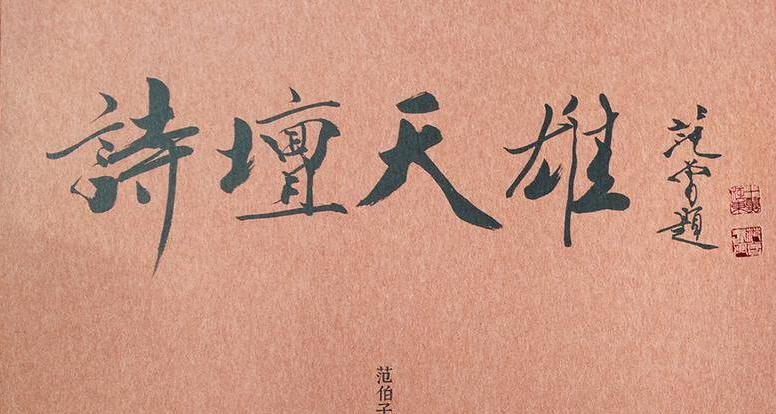 詩壇天雄
范曾題
范伯子